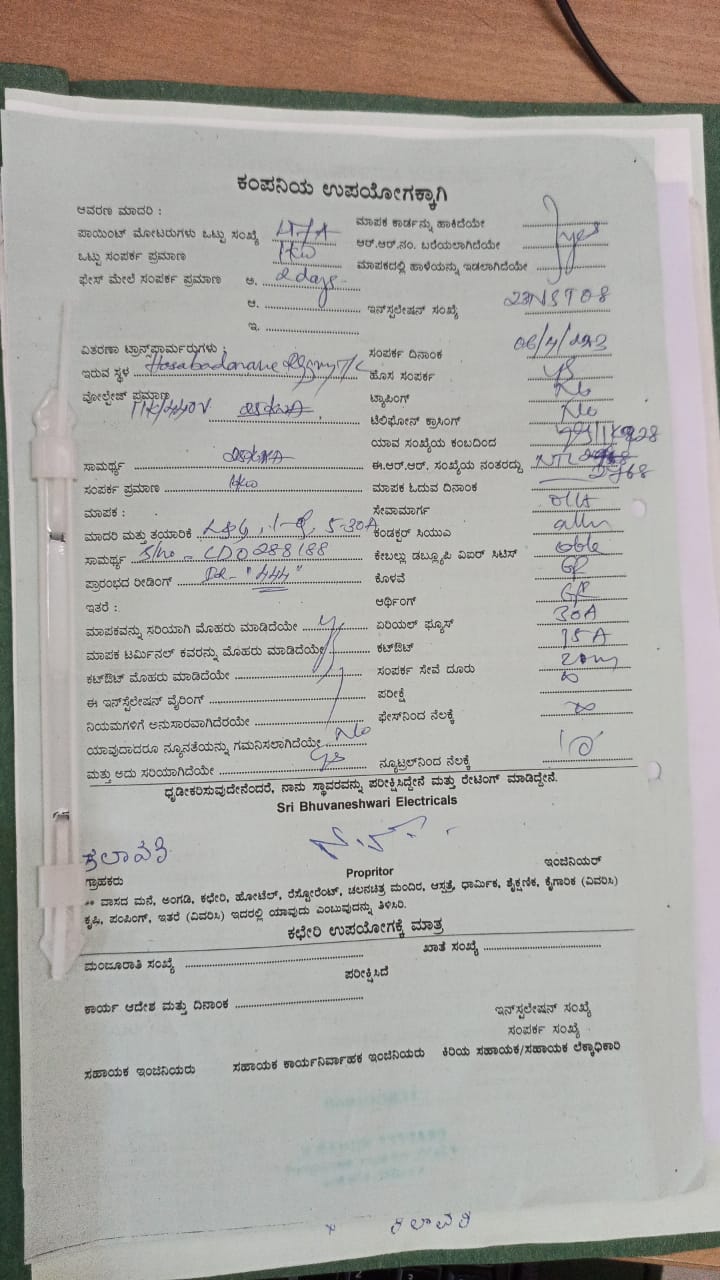 ಕಂಪನಿಯ ಉಪಯೋಗಕ್ಕಾಗಿ
ಆವರಣ ಮಾದರಿ :
ಮಾಪಕ ಕಾರ್ಡನ್ನು ಹಾಕಿದೆಯೇ
ಪಾಯಿಂಟ್ ಮೋಟರುಗಳು ಒಟ್ಟು ಸಂಖ್ಯೆ
ಆರ್.ಆರ್.ನಂ. ಬರೆಯಲಾಗಿದೆಯೇ yes
ಒಟ್ಟು ಸಂಪರ್ಕ ಪ್ರಮಾಣ 1KW
ಮಾಪಕದಲ್ಲಿ ಹಾಳೆಯನ್ನು ಇಡಲಾಗಿದೆಯೇ
ಫೇಸ್ ಮೇಲೆ ಸಂಪರ್ಕ ಪ್ರಮಾಣ ಅ. 2 days
ಆ. ಇನ್‌ಸ್ಟಲೇಷನ್ ಸಂಖ್ಯೆ 23NST08
ಇ.
ವಿತರಣಾ ಟ್ರಾನ್ಸ್‌ಫಾರ್ಮರುಗಳು : ಸಂಪರ್ಕ ದಿನಾಂಕ
ಇರುವ ಸ್ಥಳ ಹೊಸ ಸಂಪರ್ಕ ys
ವೋಲ್ಟೇಜ್ ಪ್ರಮಾಣ 11K/440V 25KVA ಟ್ಯಾಪಿಂಗ್ No
ಟೆಲಿಫೋನ್ ಕ್ರಾಸಿಂಗ್ No
ಯಾವ ಸಂಖ್ಯೆಯ ಕಂಬದಿಂದ
ಸಾಮರ್ಥ್ಯ 25KVA ಈ.ಆರ್.ಆರ್. ಸಂಖ್ಯೆಯ ನಂತರದ್ದು
ಸಂಪರ್ಕ ಪ್ರಮಾಣ 1KW ಮಾಪಕ ಓದುವ ದಿನಾಂಕ
ಮಾಪಕ : ಸೇವಾಮಾರ್ಗ OH
ಮಾದರಿ ಮತ್ತು ತಯಾರಿಕೆ L&G, 1-φ, 5-30A ಕಂಡಕ್ಟರ್ ಸಿಯುಎ
ಸಾಮರ್ಥ್ಯ S/no - CD0288188 ಕೇಬಲ್ಲು ಡಬ್ಲ್ಯೂಪಿ ವಿಐರ್ ಸಿಟಿಸ್
ಪ್ರಾರಂಭದ ರೀಡಿಂಗ್ "444" ಕೊಳವೆ
ಇತರೆ : ಆರ್ಥಿಂಗ್
ಮಾಪಕವನ್ನು ಸರಿಯಾಗಿ ಮೊಹರು ಮಾಡಿದೆಯೇ ಏರಿಯಲ್ ಫ್ಯೂಸ್ 30A
ಮಾಪಕ ಟರ್ಮಿನಲ್ ಕವರನ್ನು ಮೊಹರು ಮಾಡಿದೆಯೇ ಕಟ್‌ಔಟ್ 15A
ಕಟ್‌ಔಟ್ ಮೊಹರು ಮಾಡಿದೆಯೇ ಸಂಪರ್ಕ ಸೇವೆ ದೂರು 20m
ಈ ಇನ್‌ಸ್ಟಲೇಷನ್ ವೈರಿಂಗ್ ಪರೀಕ್ಷೆ ∞
ನಿಯಮಗಳಿಗೆ ಅನುಸಾರವಾಗಿದೆರಯೇ ಫೇಸ್‌ನಿಂದ ನೆಲಕ್ಕೆ ∞
ಯಾವುದಾದರೂ ನ್ಯೂನತೆಯನ್ನು ಗಮನಿಸಲಾಗಿದೆಯೇ No
ಮತ್ತು ಅದು ಸರಿಯಾಗಿದೆಯೇ ys ನ್ಯೂಟ್ರಲ್‌ನಿಂದ ನೆಲಕ್ಕೆ
ಧೃಡೀಕರಿಸುವುದೇನೆಂದರೆ, ನಾನು ಸ್ಥಾವರವನ್ನು ಪರೀಕ್ಷಿಸಿದ್ದೇನೆ ಮತ್ತು ರೇಟಿಂಗ್ ಮಾಡಿದ್ದೇನೆ.
Sri Bhuvaneshwari Electricals
ಕಲಾವತಿ
ಗ್ರಾಹಕರು Propritor ಇಂಜಿನಿಯರ್
** ವಾಸದ ಮನೆ, ಅಂಗಡಿ, ಕಛೇರಿ, ಹೋಟೆಲ್, ರೆಸ್ಟೋರೆಂಟ್, ಚಲನಚಿತ್ರ ಮಂದಿರ, ಆಸ್ಪತ್ರೆ, ಧಾರ್ಮಿಕ, ಶೈಕ್ಷಣಿಕ, ಕೈಗಾರಿಕೆ (ವಿವರಿಸಿ)
ಕೃಷಿ, ಪಂಪಿಂಗ್, ಇತರೆ (ವಿವರಿಸಿ) ಇದರಲ್ಲಿ ಯಾವುದು ಎಂಬುವುದನ್ನು ತಿಳಿಸಿರಿ.
ಕಛೇರಿ ಉಪಯೋಗಕ್ಕೆ ಮಾತ್ರ
ಮಂಜೂರಾತಿ ಸಂಖ್ಯೆ ಖಾತೆ ಸಂಖ್ಯೆ
ಪರೀಕ್ಷಿಸಿದೆ
ಕಾರ್ಯ ಆದೇಶ ಮತ್ತು ದಿನಾಂಕ
ಇನ್‌ಸ್ಟಲೇಷನ್ ಸಂಖ್ಯೆ
ಸಂಪರ್ಕ ಸಂಖ್ಯೆ
ಸಹಾಯಕ ಇಂಜಿನಿಯರು ಸಹಾಯಕ ಕಾರ್ಯನಿರ್ವಾಹಕ ಇಂಜಿನಿಯರು ಕಿರಿಯ ಸಹಾಯಕ/ಸಹಾಯಕ ಲೆಕ್ಕಾಧಿಕಾರಿ
x ಕಲಾವತಿ